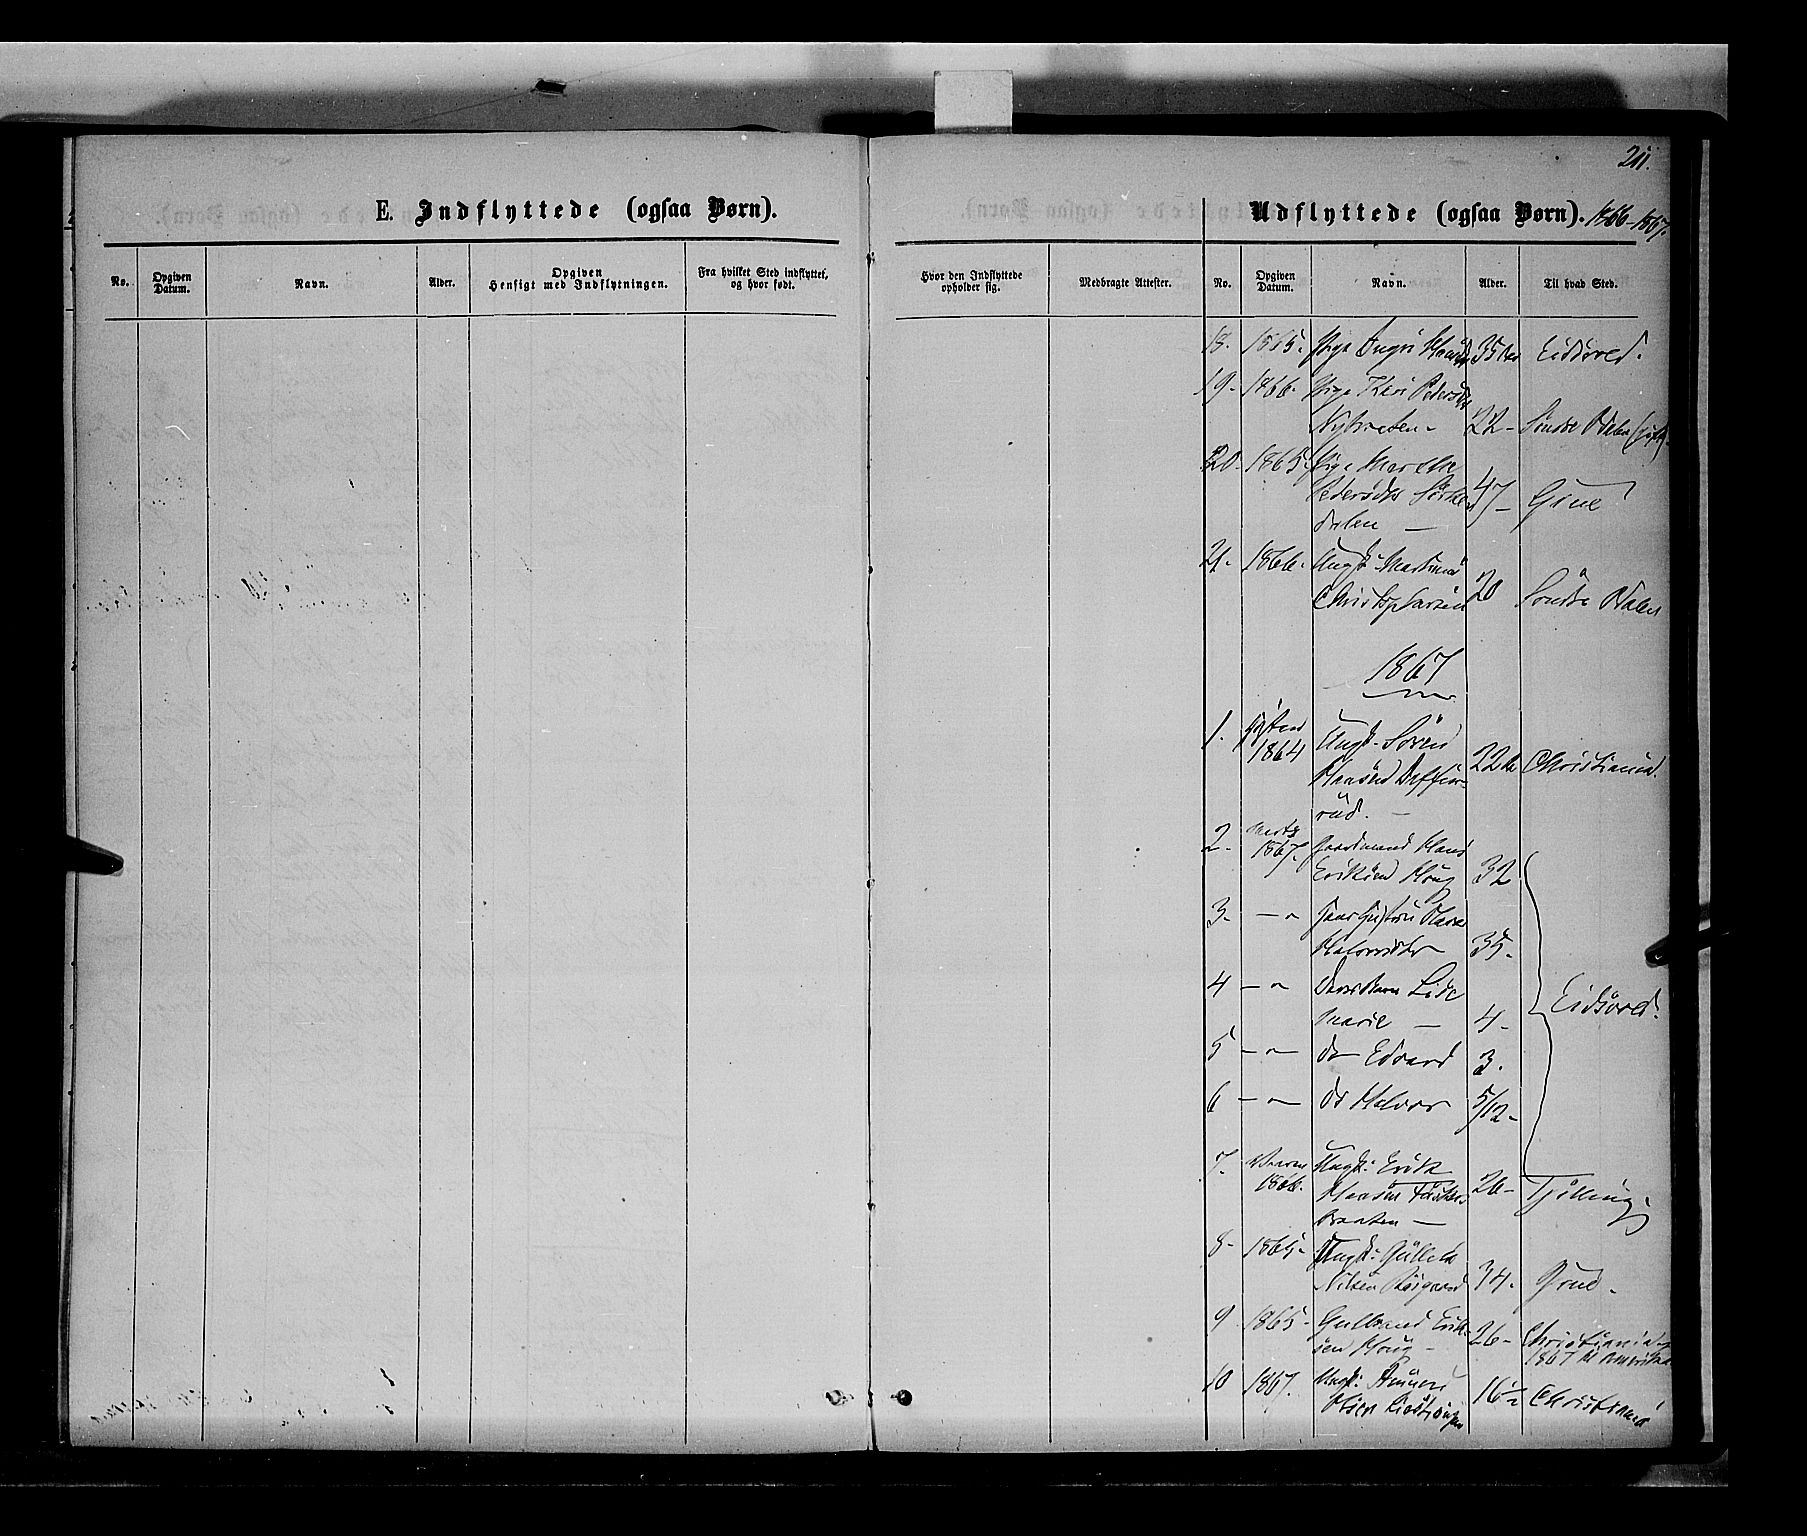 211.
E. Indflyttede (ogsaa Børn).
Udflyttede (ogsaa Børn). 1866-1867.
No.
Opgiven
Datum.
Navn.
Alder.
Opgiven
Hensigt med Indflytningen.
Fra hvilket Sted indflyttet,
og hvor født.
Hvor den Indflyttede
opholder sig.
Medbragte Attester.
No.
Opgiven
Datum.
Navn.
Alder.
Til hvad Sted.
18. 1865. Pige Ingri 35 Eidsvold.
19- 1866. Pige Kari Pedersdtr
Nybraaten- 22- Søndre Odalen
20. 1865. Pige Marthe
Pedersdtr 47- Grue
dalen —
21. 1866. Ungk. Martinus
Christophersen 20 Søndre Odalen
1867
1. 1864 Ungk. Søren
Hansen 22 Christiania.
rud. —
2. 1867. Gaardmand Hans
Eriksen Houg 32
3. — " Maren
Halvorsdtr 35.
4 — " Deres Barn Lise
Marie — 4-
5 — " do Edvard 3.
6 — " do Halvor 5/12-
Eidsvold.
7. 1866. Ungk. Erik
Hansen 26-
braaten —
8- 1865- Ungk. Gullik
Nilsen 34. Grue.
9 1865- Gulbrand Erik-
sen Houg - 26- Christiania
1867 til Amerika
10 1867. Ungk.
Olsen 16 Christiania